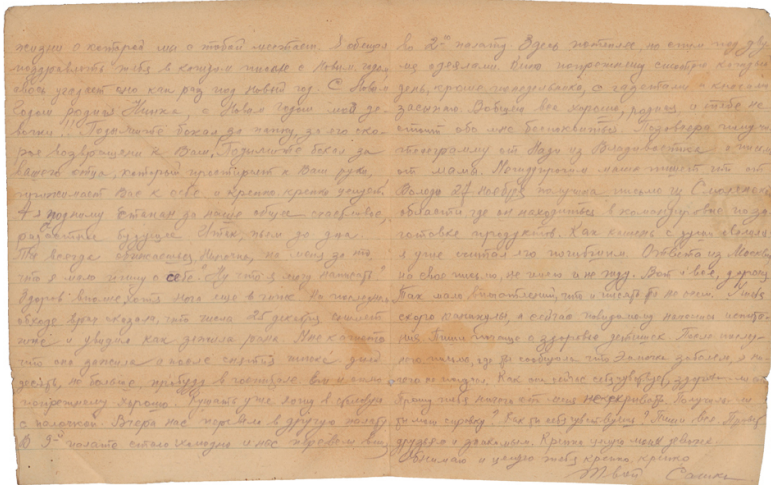 жизни о которой мы с тобой мечтаем. Я обещал
поздравлять тебя в каждом письме с Новым годом
угодает оно как раз под Новый год. С Новым
Годом родная Нинка, с Новым годом мои де-
вочки!!! Поднимите бокал за папку, за его ско-
рое возвращение к Вам. Поднимите бокал за
Вашего отца, который простирает к Вам руки,
прижимает Вас к себе и крепко крепко целует
А я подниму стакан за наше общее счастливое,
радостное будущее. Итак, пьем до дна.
Ты всегда обижаешься Ниночка, на меня за то,
что я мало пишу о себе. Ну что я могу написать?
Здоров вполне, хотя нога еще в гипсе. На последнем
обходе врач сказала, что числа 25 декабря снимет
гипс и увидим как зажила рана. Мне кажется
что она зажила и после снятия гипса дней
десять, не больше, пробуду в госпитале
попрежнему хорошо. Кушать уже хожу в столовую
с палочкой. Вчера нас перевели в другую палату
В 9ой палате стало холодно и нас перевели вниз
во 2ую палату. Здесь потеплее, но спим под двумя
одеялами. Кино попрежнему смотрю каждый
день, кроме понедельника, с газетами и книгами
засыпаю. Вобщем все хорошо, родная, и тебе не
стоит обо мне беспокоиться. Позавчера получил
телеграмму от Нади из Владивостока и письмо
от мамы. Между прочим мама пишет что от
Володи 27 ноября получила письмо из Смоленской
области где он находиться в командировке по за-
готовке продуктов. Как камень с души свалился
я уже считал его погибшим. Ответа из Москвы
на свое письмо, не имею и не жду. Вот и все, дорогая
Так мало впечатлений, что и писать то не о чем.
Пиши чаще о здоровье детишек. После
письма, где ты сообщала что Эллочка заболела, я
ничего не получал. Как они сейчас себя чувствуют, здоровы ли
Прошу тебя ничего от меня не скрывать. Получила ли
ты мою справку? Как ты себя чувствуешь? Пиши все. Привет
друзьям и знакомым. Крепко целуй моих девочек.
Обнимаю и целую тебя крепко, крепко
Твой Сашка